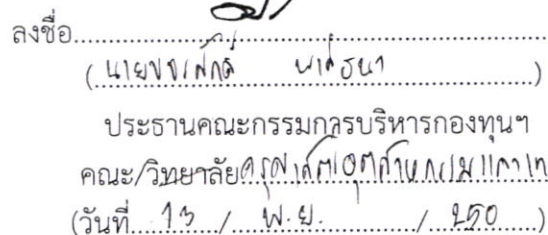 ลงชื่อ
(นาย
ประธานคณะกรรมการบริหารกองทุนฯ
คณะ/วิทยาลัยครุศาสตร์อุตสาหกรรมและเท
(วันที่ 13 / พ.ย. / 250)